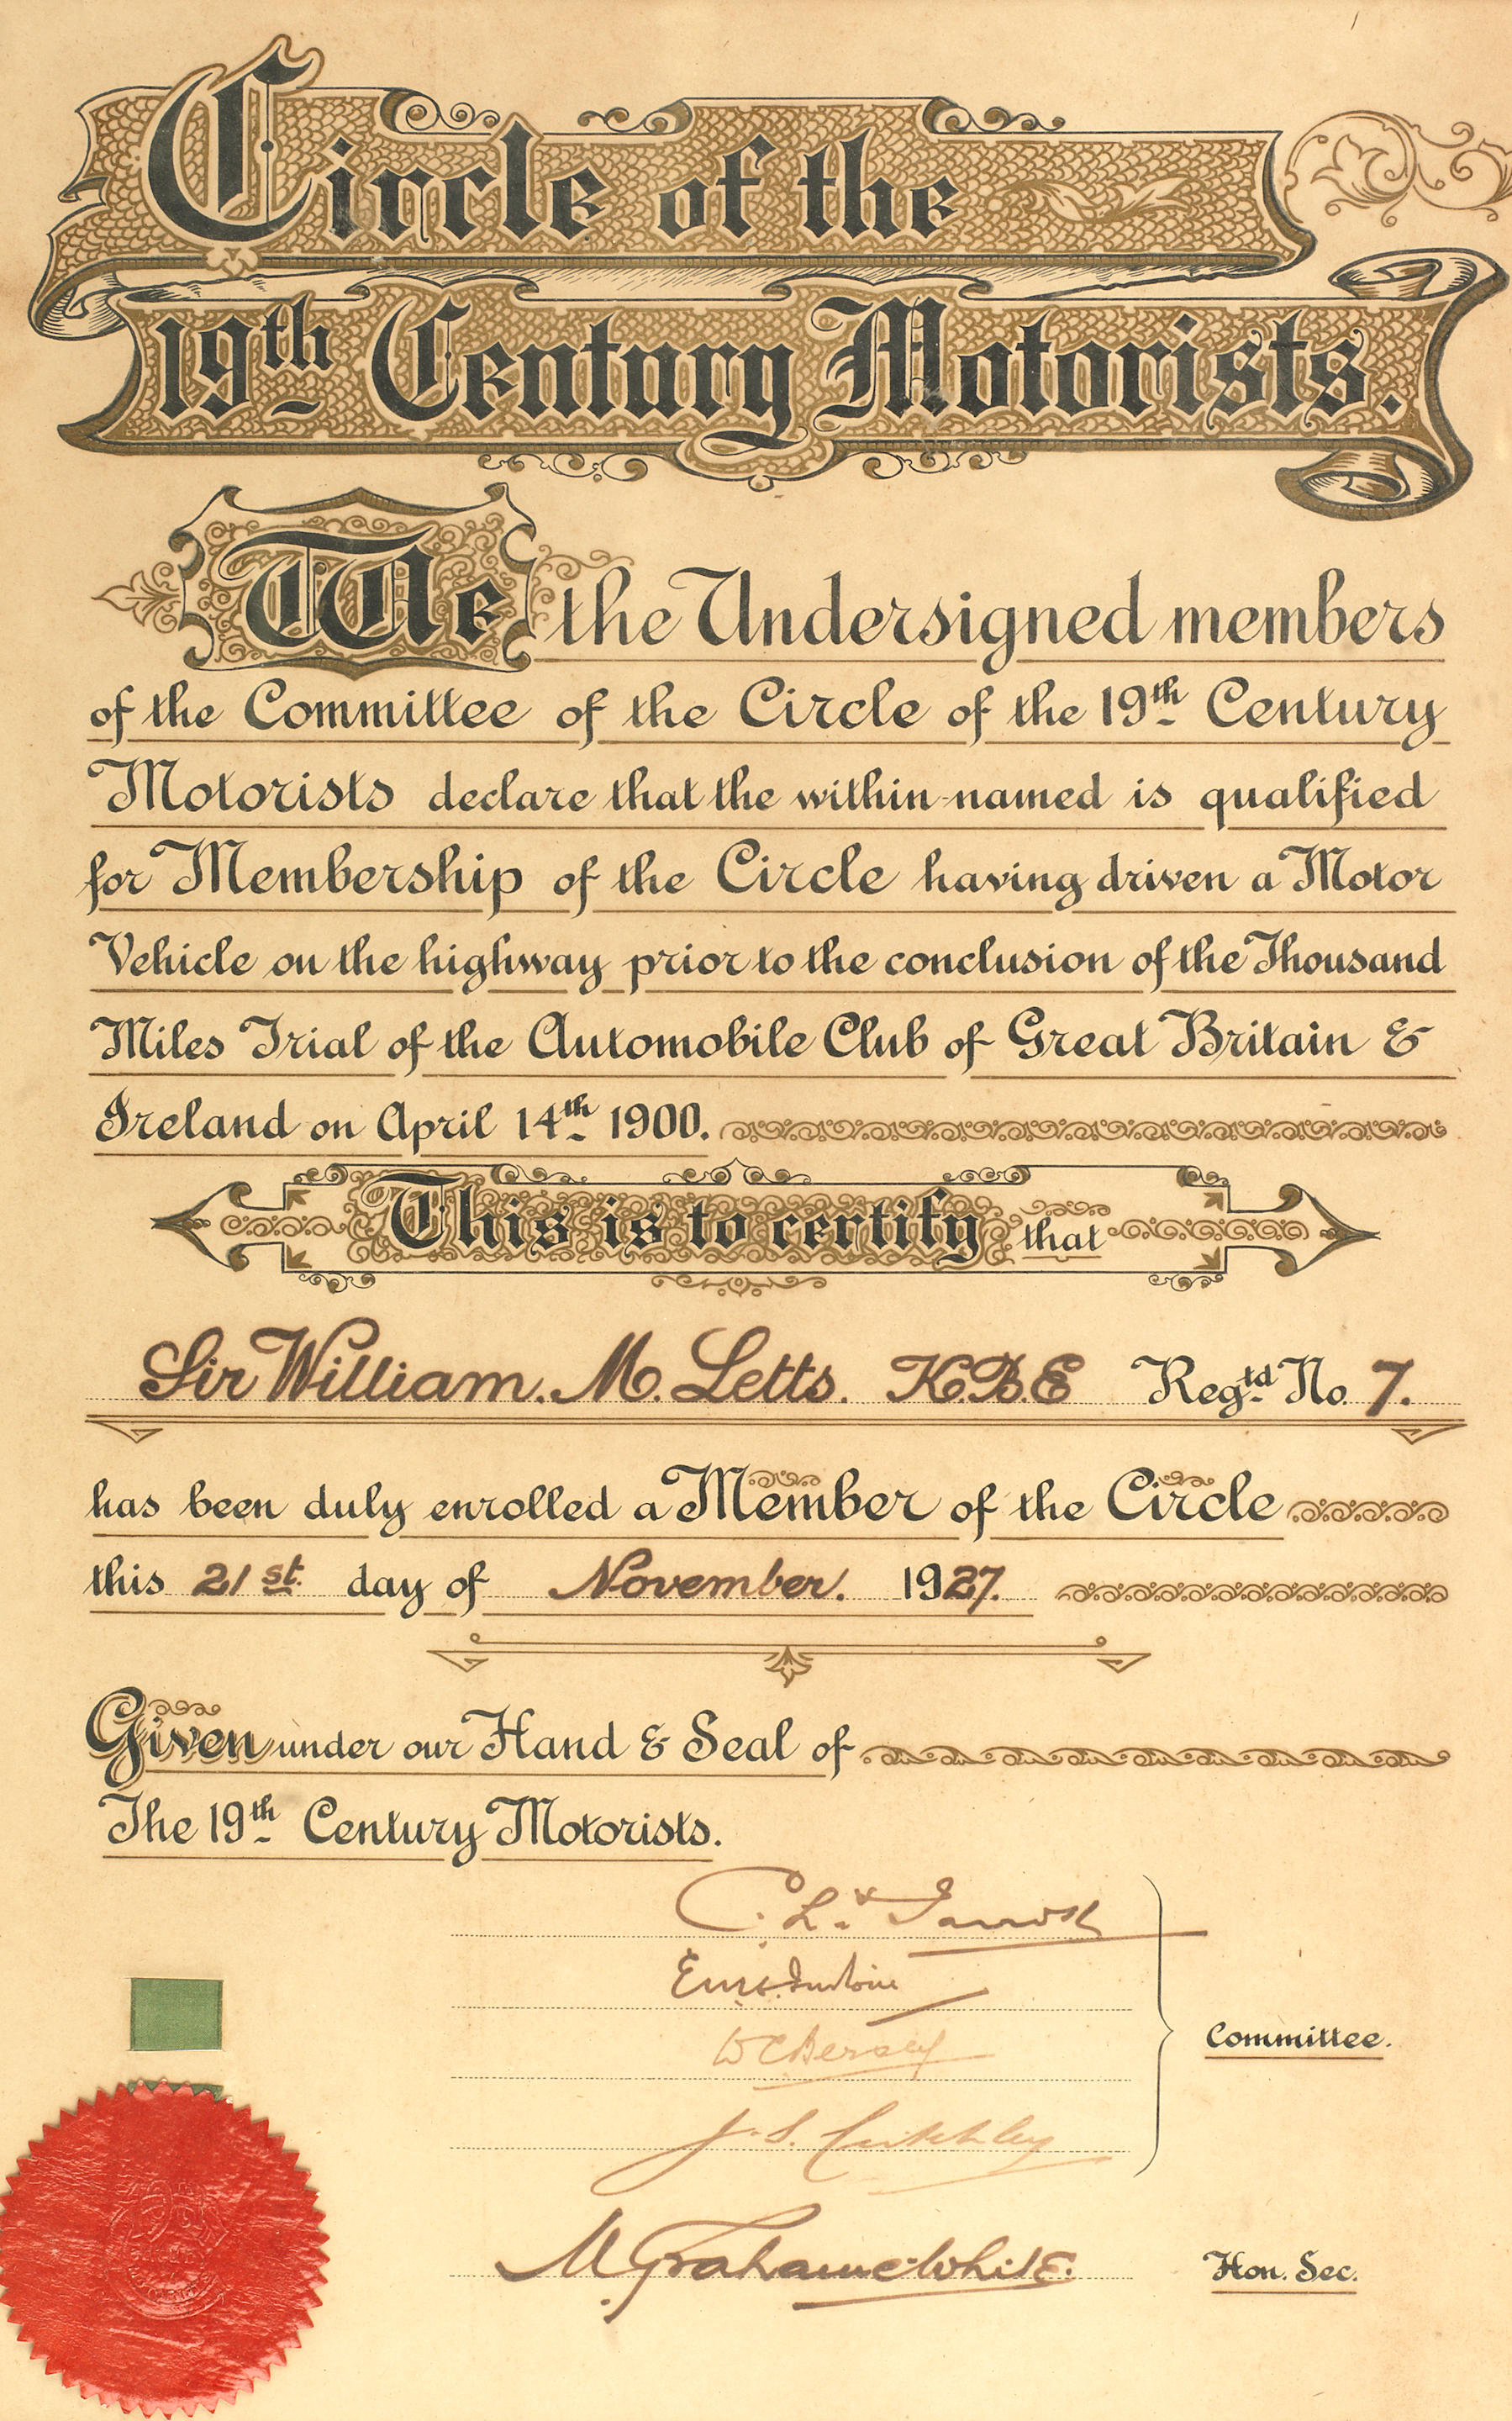 Circle of the
19th Century Motorists.
We the Undersigned members
of the Committee of the Circle of the 19th Century
Motorists declare that the within-named is qualified
for Membership of the Circle having driven a Motor
Vehicle on the highway prior to the conclusion of the Thousand
Miles Trial of the Automobile Club of Great Britain &
Ireland on April 14th 1900.
This is to certify that
Sir William. M. Letts. K.B.E Regtd No. 7.
has been duly enrolled a Member of the Circle
this 21st. day of November. 1927.
Given under our Hand & Seal of
The 19th Century Motorists.
C. L.
W C Bersey
J. S. Critchley
Committee.
M. Grahame-White. Hon. Sec.